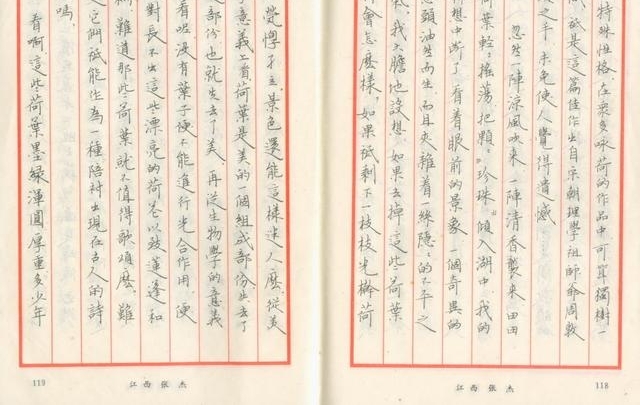 特殊性格在衆多咏荷的作品中可算獨樹一
幟,祇是這篇佳作出自宋朝理學祖師爺周敦
之手,未免使人覺得遺憾
忽然一陣涼風吹來,一陣清香襲來,田田
荷葉輕輕搖蕩把顆顆"珍珠"傾入湖中,我的
想中斷了,看着眼前的景象,一個奇異的
念頭油然而生,而且夾雜着一絲隱隱的不平之
氣,我大膽地設想,如果去掉這些荷葉
會怎麽樣,如果祇剩下一枝枝光桿荷
118
江西張杰
孑立,景色還能這樣迷人麽,從美
學意義上看荷葉是美的一個組成部份失去了
這部份也就失去了美,再從生物學的意義
看呢没有葉子便不能進行光合作用,便
對長不出這些漂亮的荷花以致蓮蓬和
藕,難道那些荷葉就不值得歌頌麽,難
道它們祇能作為一種陪衬出現在古人的詩
嗎,
看啊這些荷葉墨綠渾圓厚重多少年
119
江西張杰